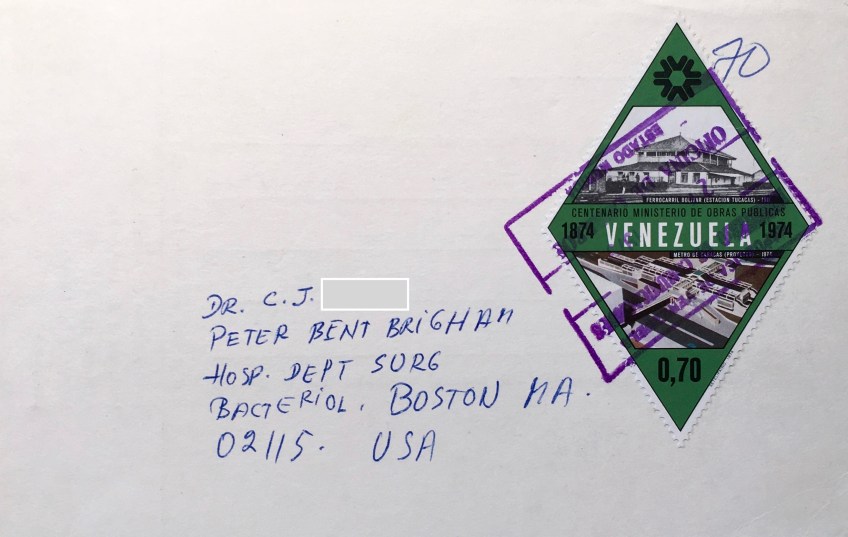 70
ESTADO
ANTONIO
FERROCARRIL BOLIVAR (ESTACION TUCACAS)
CENTENARIO MINISTERIO DE OBRAS PUBLICAS
1874 VENEZUELA 1974
METRO DE CARACAS (PROYECTO) - 1974
0,70
DR. C. J.
PETER BENT BRIGHAM
HOSP. DEPT SURG
BACTERIOL, BOSTON MA.
02115. USA